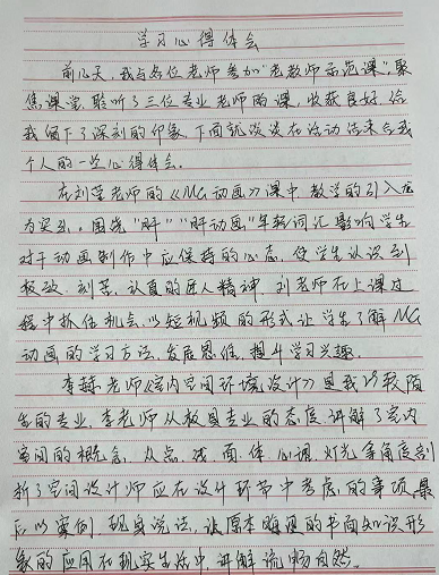 学习心得体会
前几天，我与各位老师参加"老教师示范课"，聚
焦课堂，聆听了三位专业老师的课，收获良好，给
我留下了深刻的印象，下面就谈谈在活动结束后我
个人的一些心得体会。
在刘莹老师的《MG动画》课中，教学的引入尤
为突出。围绕"肝""肝动画"年轻词汇影响学生
对于动画制作中应保持的心态，使学生认识到
极致、刻苦、认真的匠人精神，刘老师在上课过
程中抓住机会，以短视频的形式让学生了解MG
动画的学习方法，发展思维，提升学习兴趣。
李赫老师《室内空间环境设计》是我比较陌
生的专业，李老师从极具专业的态度，讲解了室内
空间的概念，从点、线、面、体、心理、灯光等角度剖
析了空间设计师应在设计环节中考虑的事项，最
后以案例，现身说法，让原本晦涩的书面知识形
象的应用在现实生活中，讲解流畅自然。